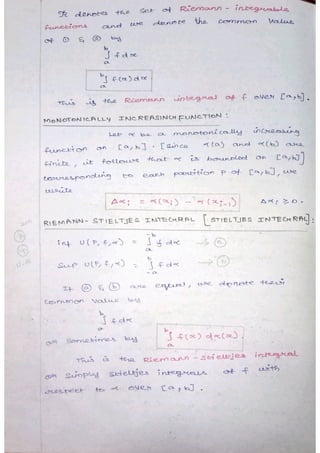 R denotes the set of Riemann - integrable
functions and we denote the common value
of ① & ② by
b
∫ f dx
a
b
∫ f(x) dx
a
This is the Riemann integral of f over [a,b].
MONOTONICALLY INCREASING FUNCTION :
Let α be a monotonically increasing
function on [a,b]. [Since α(a) and α(b) are
finite, it follows that α is bounded on [a,b]]
corresponding to each partition P of [a,b], we
write
Δαi = α(xi) - α(xi-1) Δαi ≥ 0.
RIEMANN - STIELTJES INTEGRAL [STIELTJES INTEGRAL]:
inf U(P, f, α) = ∫ f dα → ⓐ
Sup U(P, f, α) = ∫ f dα → ⓑ
If ⓐ & ⓑ are equal, we denote their
common value by
b
∫ f dα
a
or sometimes by ∫ f(x) dα(x).
This is the Riemann - Stieltjes integral
or simply Stieltjes integral of f with
respect to α over [a,b].